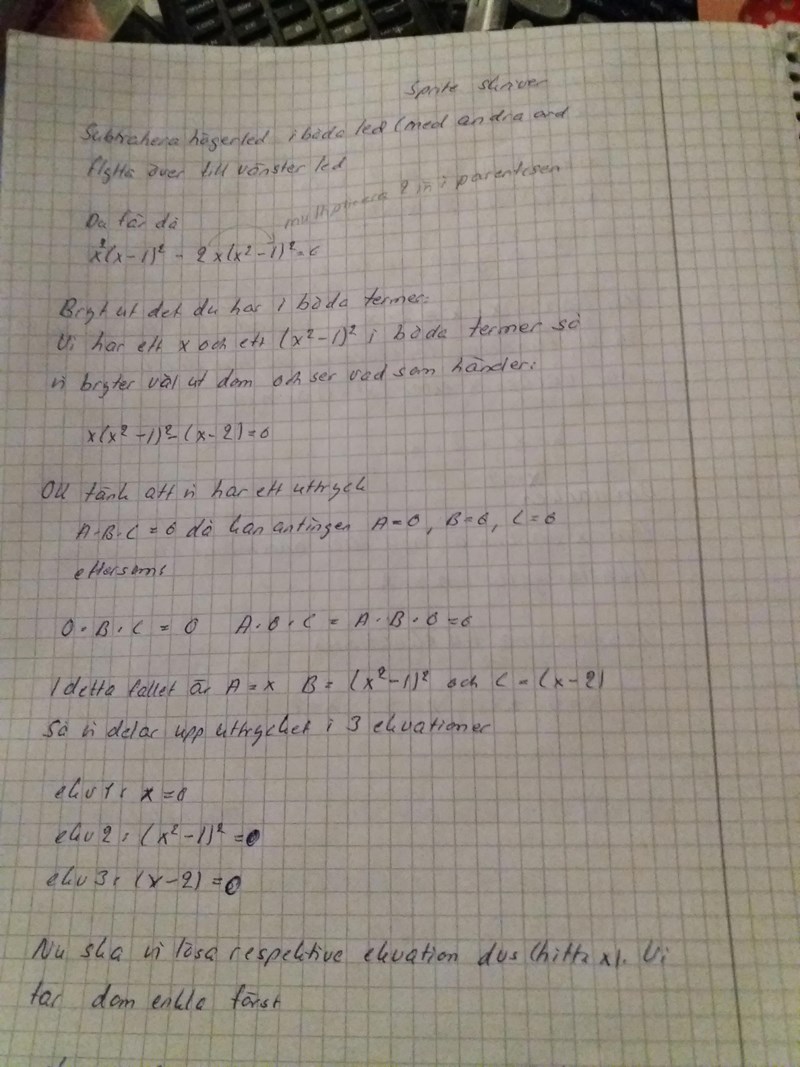 Sprite skriver
Subtrahera högerled i båda led (med andra ord
flytta över till vänster led
Du får då
multiplicera 2 in i parentesen
x²(x-1)² - 2x(x²-1)²=0
Bryt ut det du har i båda termer:
Vi har ett x och ett (x²-1)² i båda termer så
vi bryter väl ut dom och ser vad som händer:
x(x²-1)²-(x-2)=0
Ok tänk att vi har ett uttryck
A·B·C = 0 då kan antingen A=0, B=0, C=0
eftersom:
0·B·C = 0 A·0·C = A·B·0=0
I detta fallet är A=x B=(x²-1)² och C=(x-2)
Så vi delar upp uttrycket i 3 ekvationer
ekv 1: x=0
ekv 2: (x²-1)²=0
ekv 3: (x-2)=0
Nu ska vi lösa respektive ekvation dvs (hitta x). Vi
tar dom enkla först